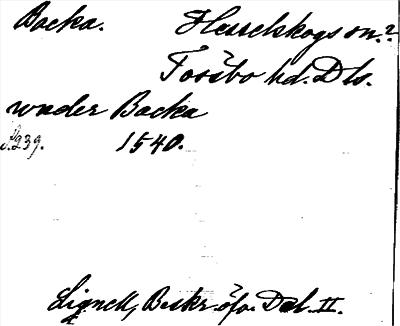 Backa. Hesselskogs sn.?
Tössbo hd. Dls.
under Backa
S. 239. 1540.
Lignell, Beskr. öfv. Dal. II.